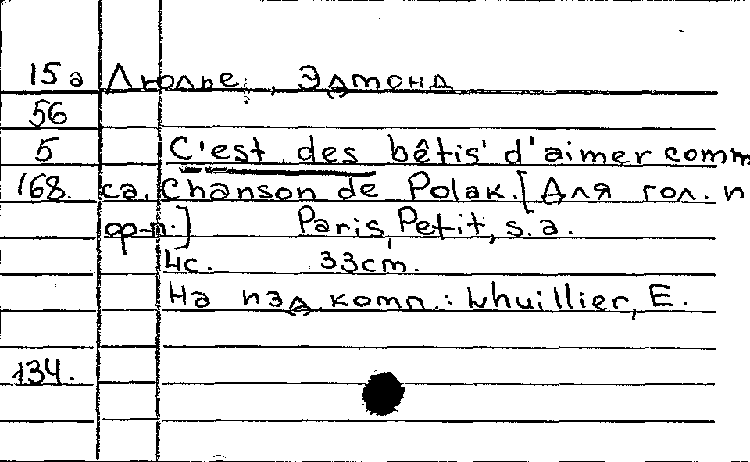 15а Люлье, Эдмонд
56
5 C'est des bêtis' d'aimer comm
168. ca. Chanson de Polak. [Для гол. и
ор-п.] Paris, Petit, s.a.
4с. 33cm.
На изд комп.: Lhuillier, E.
134.